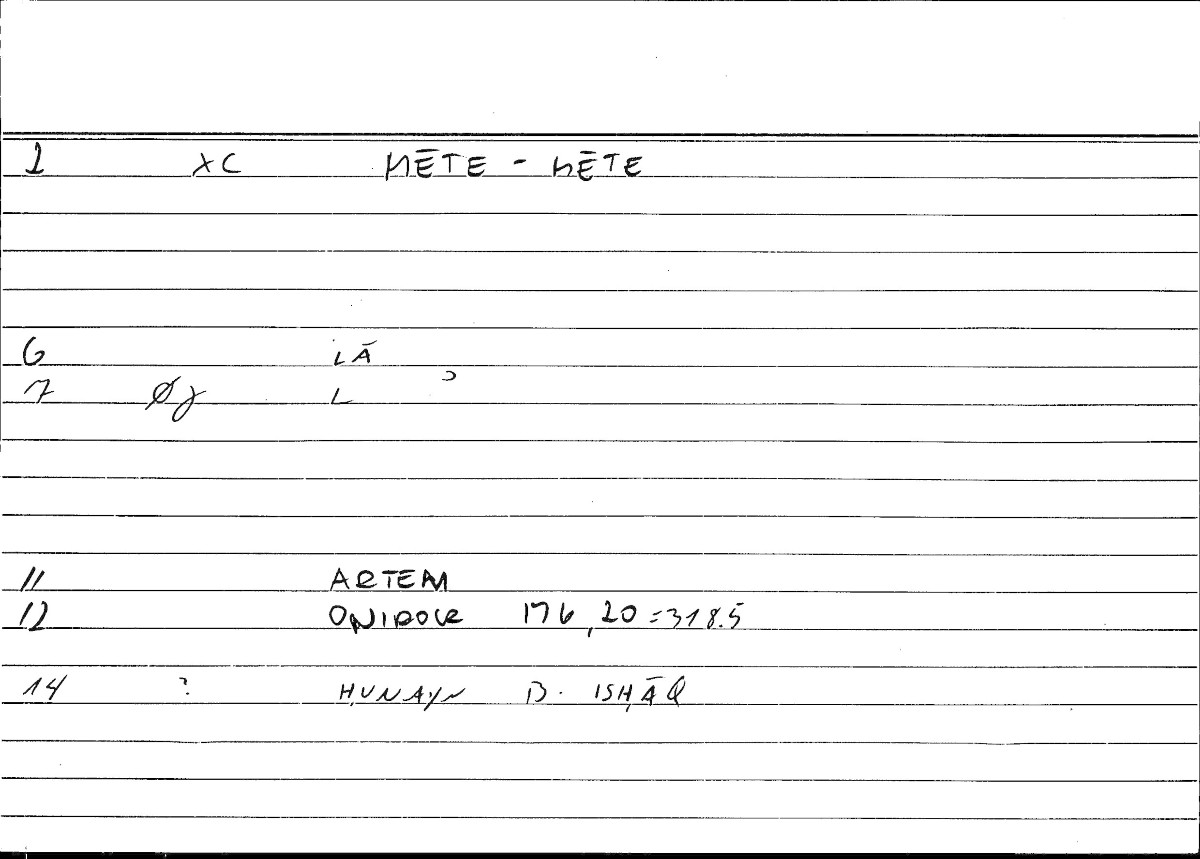 1 XC MĒTE - MĒTE
6 LĀ
7 Øγ L ʾ
11 ARTEM
12 ONIROCR 176,20=318.5
14 ? ḤUNAYN B. ISḤĀQ